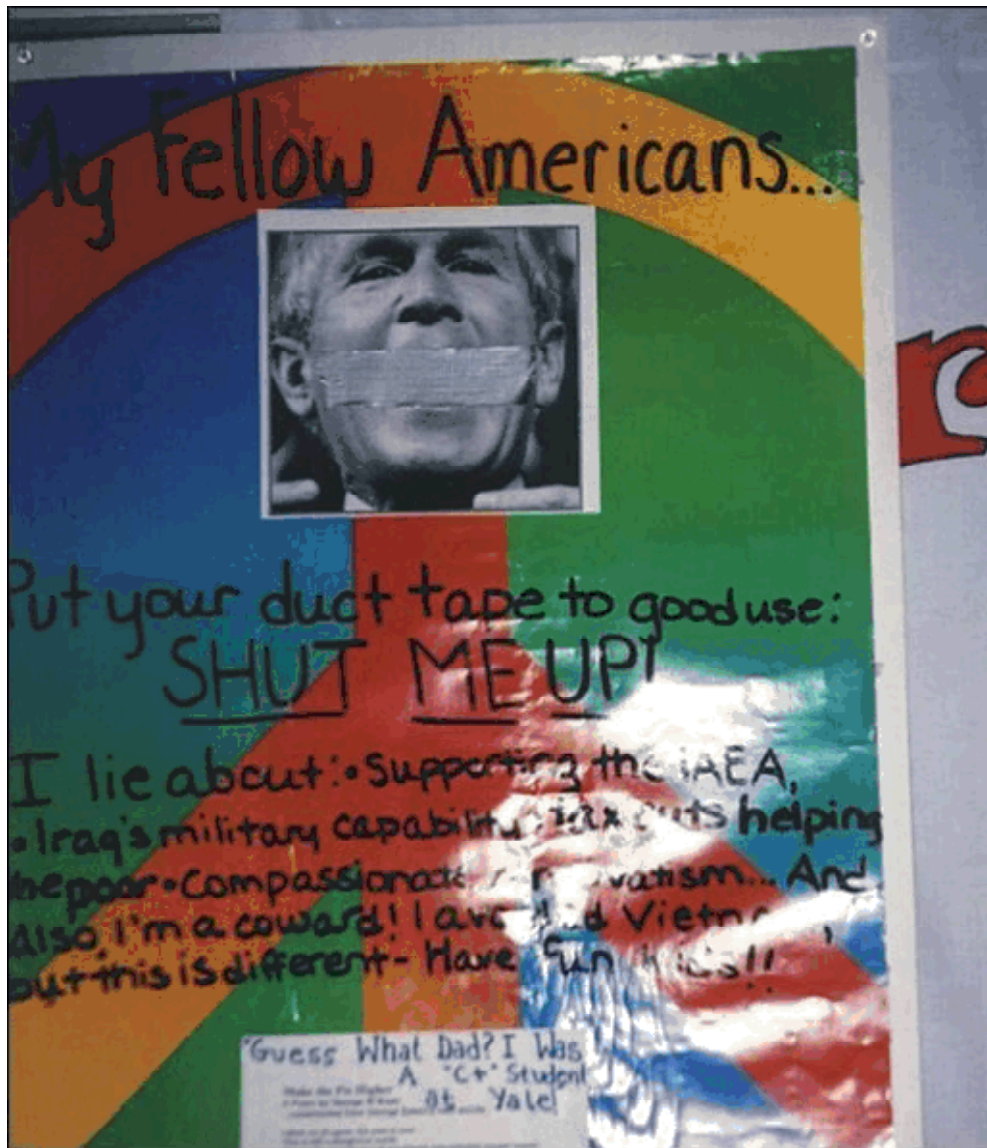 My Fellow Americans...
Put your duct tape to good use:
SHUT ME UP!
I lie about: • Supporting the IAEA,
• Iraq's military capability • tax cuts helping
the poor • Compassionate conservatism... And
also, I'm a coward! I avoided Vietnam,
but this is different - Have fun kids!!
"Guess What Dad? I Was
A "C+" Student
at Yale
Make the Pie Higher